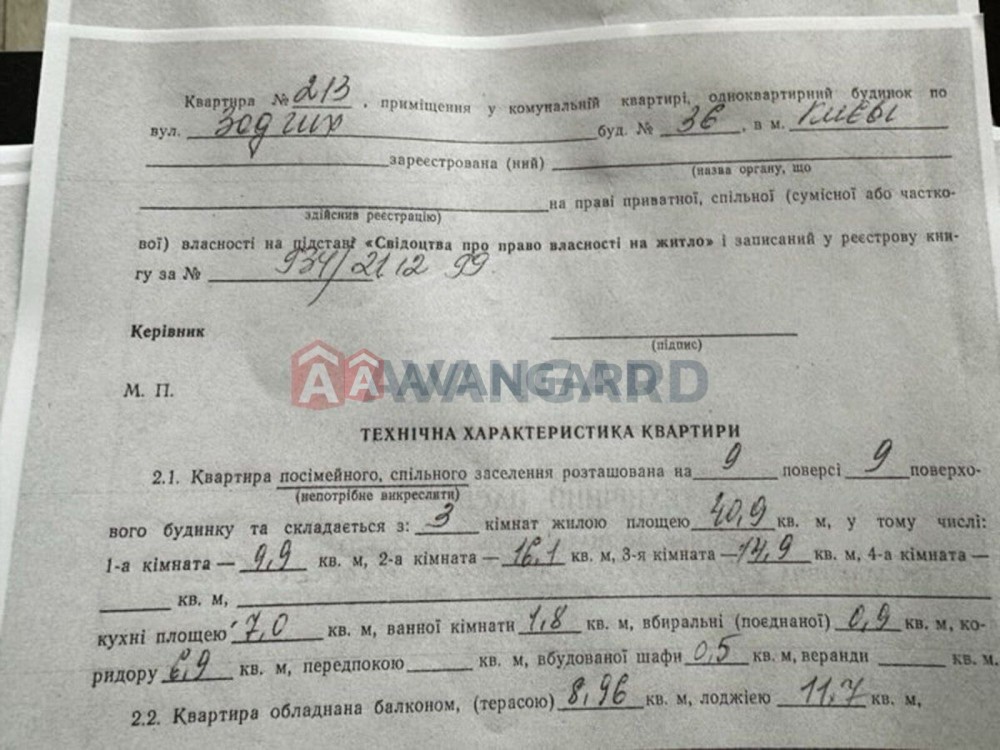 Квартира № 213, приміщення у комунальній квартирі, одноквартирний будинок по
вул. Зодчих буд. № 36, в м. Києві
зареєстрована (ний)
(назва органу, що
на праві приватної, спільної (сумісної або частко-
здійснив реєстрацію)
вої) власності на підставі «Свідоцтва про право власності на житло» і записаний у реєстрову кни-
гу за № 934/2112 99
Керівник
(підпис)
М. П.
AWANGARD
ТЕХНІЧНА ХАРАКТЕРИСТИКА КВАРТИРИ
2.1. Квартира посімейного, спільного заселення розташована на 9 поверсі 9 поверхо-
(непотрібне викреслити)
вого будинку та складається з: 3 кімнат жилою площею 40,9 кв. м, у тому числі:
1-а кімната — 9,9 кв. м, 2-а кімната — 16,1 кв. м, 3-я кімната — 14,9 кв. м, 4-а кімната —
кв. м,
кухні площею 7,0 кв. м, ванної кімнати 1,8 кв. м, вбиральні (поєднаної) 0,9 кв. м, ко-
ридору 6,9 кв. м, передпокою кв. м, вбудованої шафи 0,5 кв. м, веранди кв. м.
2.2. Квартира обладнана балконом, (терасою) 8,96 кв. м, лоджією 11,7 кв. м,